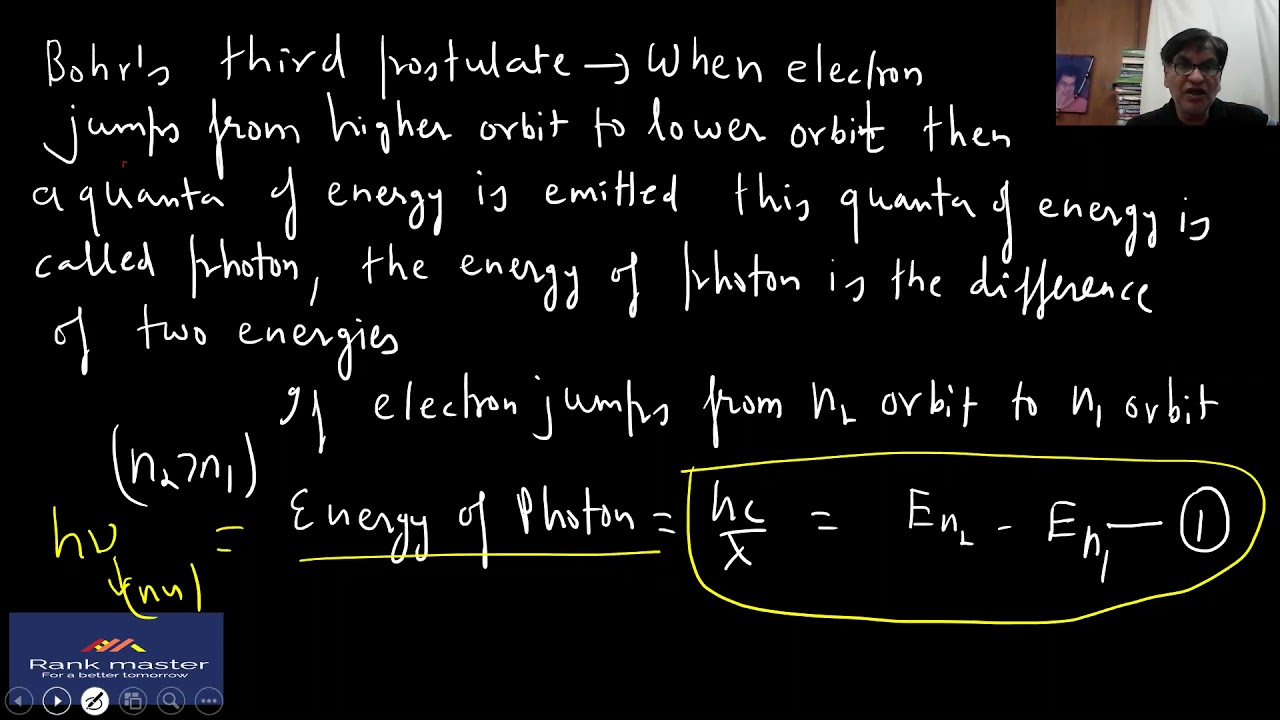 Bohr's third postulate → When electron
jumps from higher orbit to lower orbit then
a quanta of energy is emitted this quanta of energy is
called photon, the energy of photon is the difference
of two energies
If electron jumps from n₂ orbit to n₁ orbit
(n₂>n₁)
hν = Energy of Photon = hc/λ = Eₙ₂ - Eₙ₁ — ①
(nu)
Rank master
For a better tomorrow